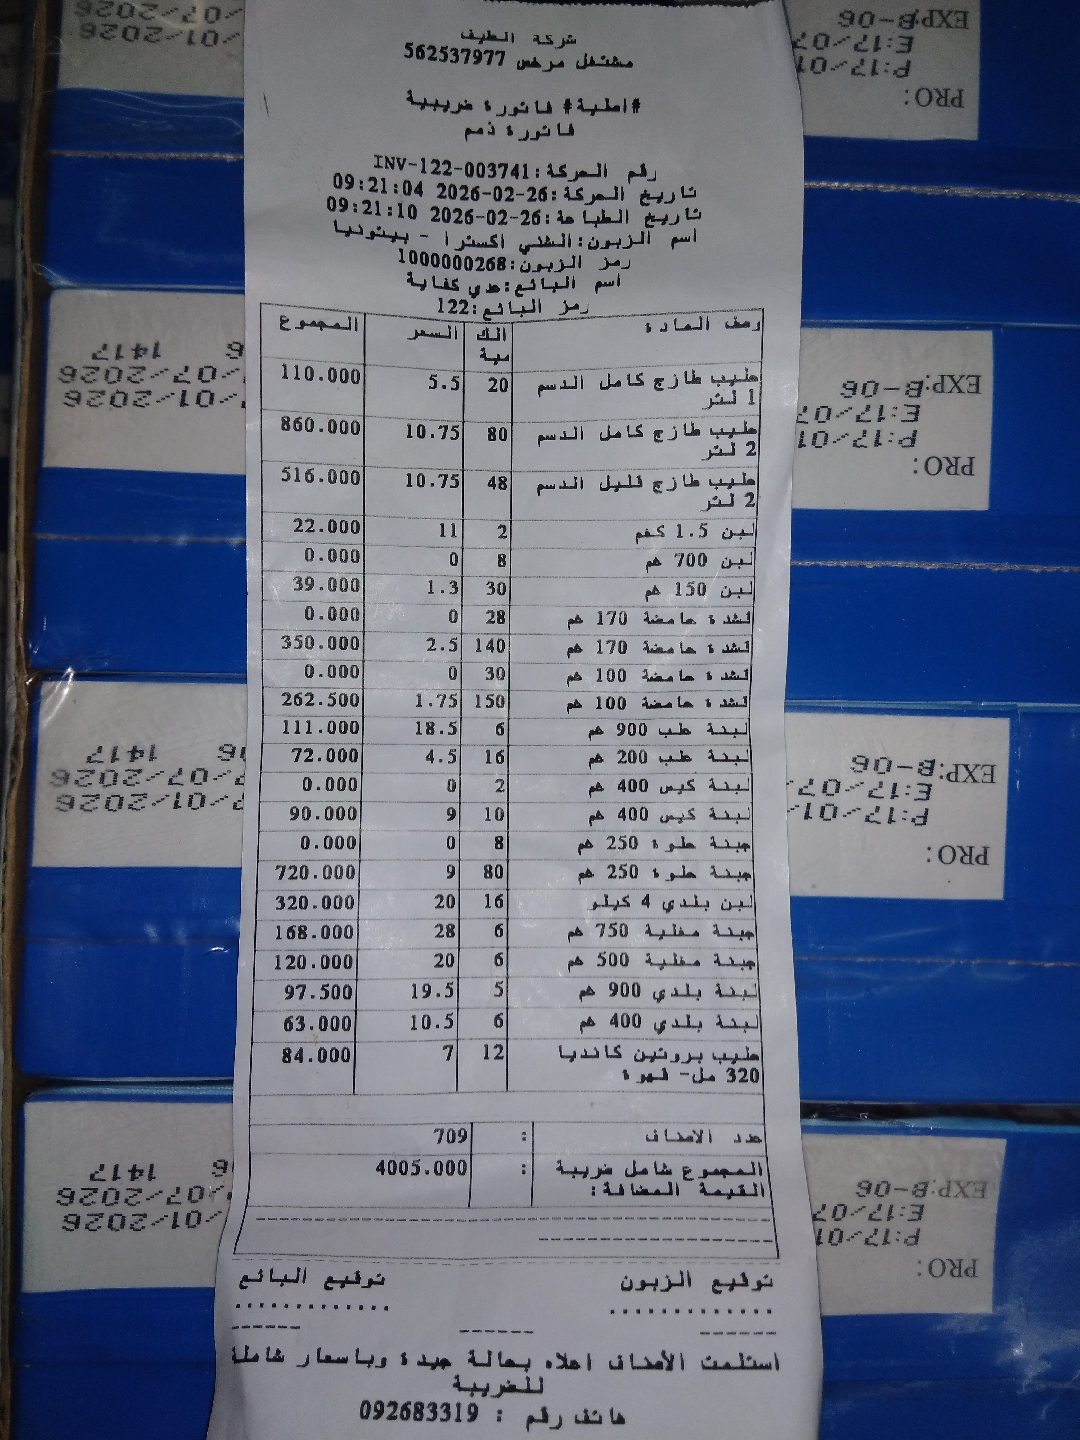 شركة الطيف
مشتغل مرخص 562537977
#اصلية# فاتورة ضريبية
فاتورة ذمم
رقم الحركة: INV-122-003741
تاريخ الحركة: 2026-02-26 09:21:04
تاريخ الطباعة: 2026-02-26 09:21:10
اسم الزبون: الشني اكسترا - بيتونيا
رمز الزبون: 1000000268
اسم البائع: عدي كفاية
رمز البائع: 122
وصف المادة الكمية السعر المجموع
حليب طازج كامل الدسم 1 لتر 20 5.5 110.000
حليب طازج كامل الدسم 2 لتر 80 10.75 860.000
حليب طازج قليل الدسم 2 لتر 48 10.75 516.000
لبن 1.5 كغم 2 11 22.000
لبن 700 غم 8 0 0.000
لبن 150 غم 30 1.3 39.000
قشدة حامضة 170 غم 28 0 0.000
قشدة حامضة 170 غم 140 2.5 350.000
قشدة حامضة 100 غم 30 0 0.000
قشدة حامضة 100 غم 150 1.75 262.500
لبنة علب 900 غم 6 18.5 111.000
لبنة علب 200 غم 16 4.5 72.000
لبنة كيس 400 غم 2 0 0.000
لبنة كيس 400 غم 10 9 90.000
جبنة حلوة 250 غم 8 0 0.000
جبنة حلوة 250 غم 80 9 720.000
لبن بلدي 4 كيلو 16 20 320.000
جبنة مغلية 750 غم 6 28 168.000
جبنة مغلية 500 غم 6 20 120.000
لبنة بلدي 900 غم 5 19.5 97.500
لبنة بلدي 400 غم 6 10.5 63.000
حليب بروتين كانديا 320 مل- قهوة 12 7 84.000
عدد الاصناف : 709
المجموع شامل ضريبة القيمة المضافة: : 4005.000
توقيع الزبون توقيع البائع
استلمت الأصناف اعلاه بحالة جيدة وباسعار شاملة
للضريبة
هاتف رقم : 092683319
PRO:
P:17/01
E:17/07
EXP:B-06
PRO:
P:17/01
E:17/07
EXP:B-06
PRO:
P:17/01
E:17/07
EXP:B-06
PRO:
P:17/01
E:17/07
EXP:B-06
/01/2026
/07/2026
1417
/01/2026
/07/2026
1417
/01/2026
/07/2026
1417